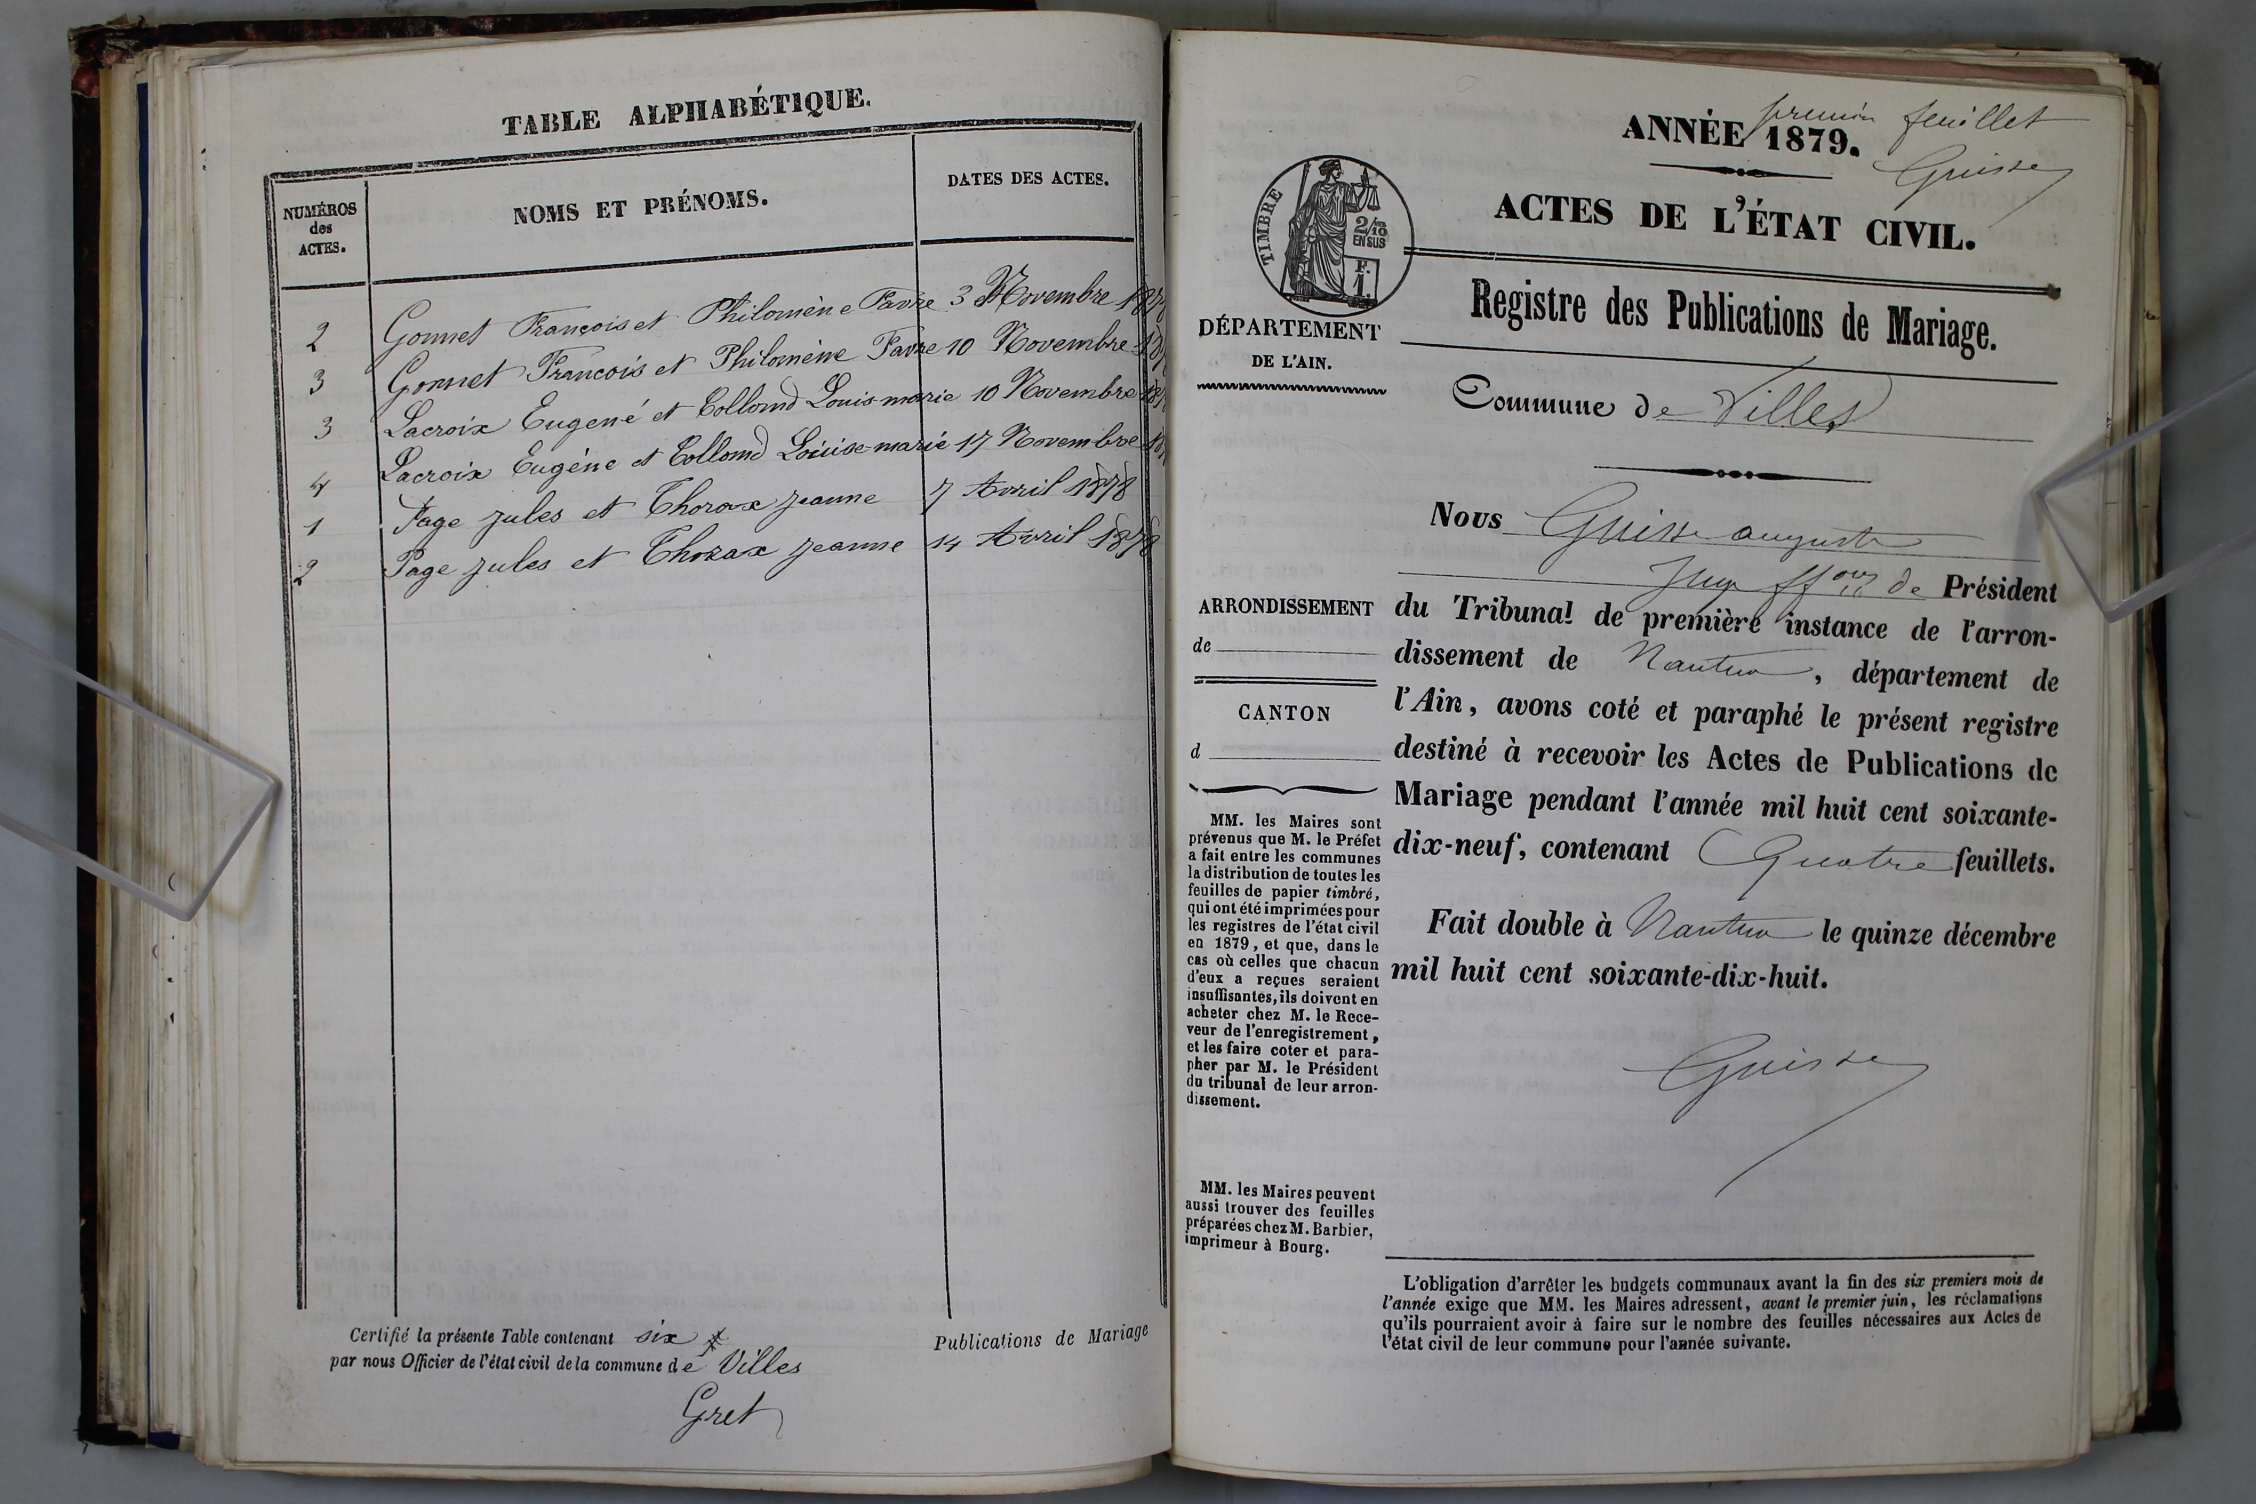 TABLE ALPHABÉTIQUE.
NUMÉROS
des
ACTES.
NOMS ET PRÉNOMS.
DATES DES ACTES.
2 Gonnet François et Philomène Favre 3 Novembre 1878
3 Gonnet François et Philomène Favre 10 Novembre
3 Lacroix Eugené et Collomd Louis marie 10 Novembre
4 Lacroix Eugène et Collomd Louise marié 17 Novembre
1 Page jules et Thorax jeanne 7 Avril 1878
2 Page jules et Thorax jeanne 14 Avril 1878
Certifié la présente Table contenant six
par nous Officier de l'état civil de la commune de Villes
Gret
Publications de Mariage
premier feuillet
ANNÉE 1879.
Guisse
ACTES DE L'ÉTAT CIVIL.
TIMBRE
2/10
EN SUS
F.
1.
Registre des Publications de Mariage.
DÉPARTEMENT
DE L'AIN.
Commune de Villes
Nous Guisse auguste
Juge ffons de Président
du Tribunal de première instance de l'arron-
dissement de Nantua, département de
l'Ain, avons coté et paraphé le présent registre
destiné à recevoir les Actes de Publications de
Mariage pendant l'année mil huit cent soixante-
dix-neuf, contenant Quatre feuillets.
Fait double à Nantua le quinze décembre
mil huit cent soixante-dix-huit.
Guisse
ARRONDISSEMENT
de
CANTON
d
MM. les Maires sont
prévenus que M. le Préfet
a fait entre les communes
la distribution de toutes les
feuilles de papier timbré,
qui ont été imprimées pour
les registres de l'état civil
en 1879, et que, dans le
cas où celles que chacun
d'eux a reçues seraient
insuffisantes, ils doivent en
acheter chez M. le Rece-
veur de l'enregistrement,
et les faire coter et para-
pher par M. le Président
du tribunal de leur arron-
dissement.
MM. les Maires peuvent
aussi trouver des feuilles
préparées chez M. Barbier,
imprimeur à Bourg.
L'obligation d'arrêter les budgets communaux avant la fin des six premiers mois de
l'année exige que MM. les Maires adressent, avant le premier juin, les réclamations
qu'ils pourraient avoir à faire sur le nombre des feuilles nécessaires aux Actes de
l'état civil de leur commune pour l'année suivante.